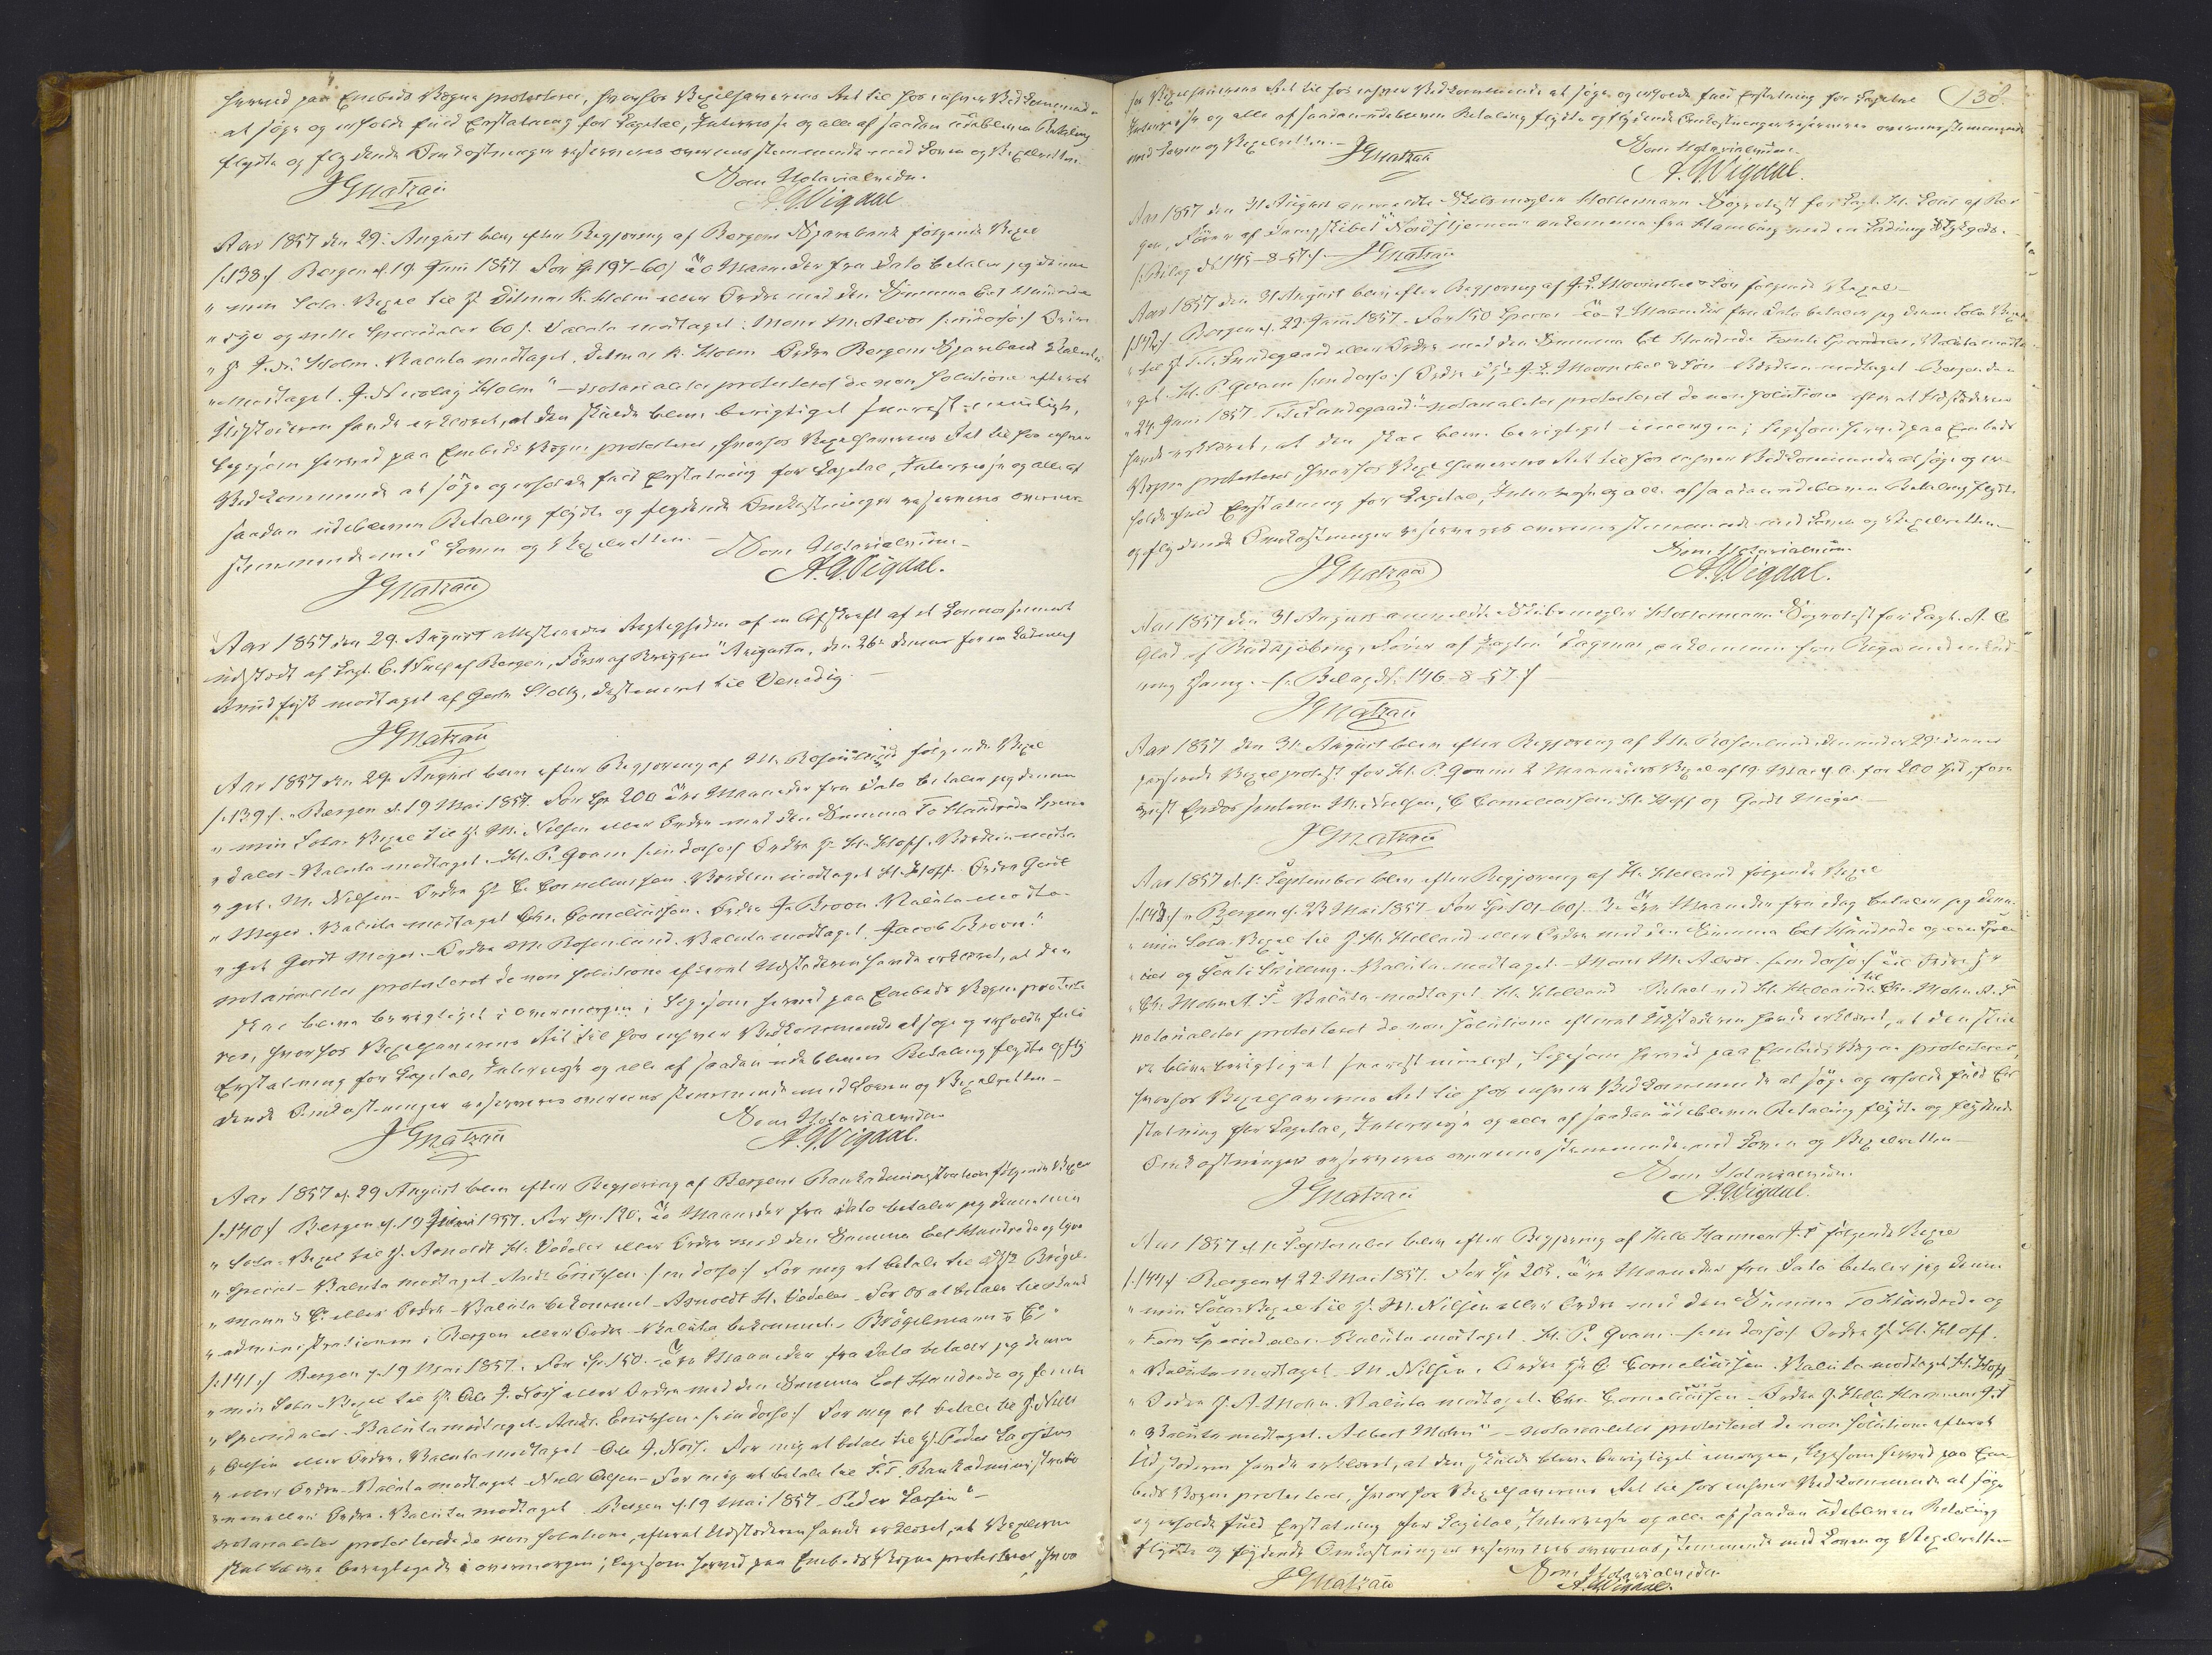 herved paa Embeds Vegne protesteres, hvorfor Vexelhaverens Ret til hos enhver Vedkommende
at søge og erholde fuld Erstatning for Capital, Interesse og alle af saadan udebleven Betaling
flydte og flydende Omkostninger reserveres overensstemmende med Loven og Vexelretten.
JGnatzau
Som Notarialvidne.
A. Wigdal
Aar 1857 den 29. August blev efter Begjæring af Bergens Sparebank følgende Vexel
/:138:/ Bergen d. 19 Juni 1857. For Sp 197-60 / to Maaneder fra Dato betaler jeg denne
" min Sola-Vexel til Hr Ditmar K. Holm eller Ordre med den Summa Et Hundrede
" syv og nitti Speciedaler 60 s. Valuta modtaget: Mons M. Alvær /:indorso:/ Ordre
" Hr J. N. Holm. Valuta modtaget. Ditmar K. Holm Ordre Bergens Sparebank Valuta
" modtaget. J. Nicolay Holm" — notarialiter protesteret de non solutione efterat
Udstederen havde erklæret, at den skulde blive berigtiget snarest muligt,
ligesom herved paa Embeds Vegne protesteres, hvorfor Vexelhaverens Ret til hos enhver
Vedkommende at søge og erholde fuld Erstatning for Capital, Interesse og alle af
saadan udebleven Betaling flydte og flydende Omkostninger reserveres overens-
stemmende med Loven og Vexelretten. —
JGnatzau
Som Notarialvidne.
A. Wigdal.
Aar 1857 den 29. August attesteredes Rigtigheden af en Afskrift af et Connossement
udstedt af Capt. C. Wulf af Bergen, Fører af Briggen "Augusta", den 26de dennes for en Ladning
Rundfisk modtaget af Gerh Stoltz, destineret til Venedig. —
JGnatzau
Aar 1857 den 29. August blev efter Begjæring af M. Rosenlund følgende Vexel
/:139:/ "Bergen d. 19 Mai 1857. For Sp 200 Maaneder fra Dato betaler jeg denne
" min Sola-Vexel til Hr M. Nilsen eller Ordre med den Summa To Hundrede Specie-
" daler. Valuta modtaget. H. P. Qvam /:indorso:/ Ordre Hr H. Hoff. Værdien modta-
" get. M. Nilsen. Ordre Hr C. Corneliussen. Værdien modtaget H. Hoff. Ordre Gerdt
" Meyer. Valuta modtaget Chr. Corneliussen. Ordre J. Broon Valuta modta-
" get Gerdt Meyer. Ordre M. Rosenlund. Valuta modtaget. Jacob Broon."
notarialiter protesteret de non solutione efterat Udstederen havde erklæret, at den
skal blive berigtiget i overmorgen; ligesom herved paa Embeds Vegne proteste-
res, hvorfor Vexelhaverens Ret til hos enhver Vedkommende at søge og erholde fuld
Erstatning for Capital, Interesse og alle af saadan udebleven Betaling flydte og fly-
dende Omkostninger reserveres overensstemmende med Loven og Vexelretten.—
JGnatzau
Som Notarialvidne
A. Wigdal.
Aar 1857 d. 29 August blev efter Begjæring af Bergens Bankadministration følgende Vexler
/:140:/ Bergen d. 19 Juni 1857. For Sp. 120. to Maaneder fra Dato betaler jeg denne min
" Sola-Vexel til Hr. Arnoldt H. Vedeler eller Ordre med den Summa Et Hundrede og tyve
" Specied. Valuta modtaget. Andr. Erichsen. /:in dorso:/ For mig at betale til Hrr Brøgel-
" mann & Co eller Ordre. Valuta bekommet. Arnoldt H. Vedeler. For os at betale til Bank-
" administrationen i Bergen eller Ordre. Valuta bekommet. Brøgelmann & Co."
/:141:/ Bergen d. 19 Mai 1857. For Sp. 150. Maaneder fra Dato betaler jeg denne
" min Sola-Vexel til Hr. Ole J. eller Ordre med den Summa Et Hundrede og femti
" Speciedaler. Valuta modtaget. Andr. Erichsen. /:in dorso:/ For mig at betale til Hr. Niels
" Olsen eller Ordre. Valuta modtaget Ole J. For mig at betale til Hr. Peder Larssen
" eller Ordre. Valuta modtaget Niels Olsen. For mig at betale til Bankadministratio-
" nen eller Ordre. Valuta modtaget Bergen d. 19 Mai 1857. Peder Larsen" —
notarialiter protesterede de non solutione, efterat Udstederen havde erklæret, at Vexlerne
skal blive berigtigede i overmorgen; ligesom herved paa Embeds Vegne protesteres, hvor-
138.
for Vexelhaverens Ret til hos enhver Vedkommende at søge og erholde fuld Erstatning for Capital
Interesse og alle af saadan udebleven Betaling flydte og flydende Omkostninger reserveres overensstemmende
med Loven og Vexelretten. —
JGnatzau
Som Notarialvidne.
A. Wigdal.
Aar 1857 den 31 August anmeldte Skibsmægler Hollemann Søprotest for Capt. af Ber-
gen, Fører af Dampskibet "Nordstjernen" ankommen fra Hamburg med en Ladning Stykgods. —
/:Bilag No 145-8-57:/
JGnatzau
Aar 1857 den 31 August blev efter Begjæring af & Søn følgende Vexel
/:142:/ Bergen d. 22. Juni 1857. For 150 Specier to 2 Maaneder fra Dato betaler jeg denne Sola Vexel
" til Hr T. T. Sundegaard eller Ordre med den Summa Et Hundrede Femti Speciedaler, Valuta modta-
" get. H. P. Qvam /:indorso:/ Ordre & Søn Værdien modtaget Bergen den
" 24. Juni 1857. T. T. Sundegaard" notarialiter protesteret de non solutione efter at Udstederen
havde erklæret, at den skal blive berigtiget imorgen; ligesom herved paa Embeds
Vegne protesteres, hvorfor Vexelhaverens Ret til hos enhver Vedkommende at søge og er-
holde fuld Erstatning for Capital, Interesse og alle af saadan udebleven Betaling flydte
og flydende Omkostninger reserveres overensstemmende med Loven og Vexelretten.—
JGnatzau
Som Notarialvidne.
A. Wigdal.
Aar 1857 den 31 August anmeldte Skibsmægler Hollemann Søprotest for Capt. A. C.
Glad af Rudkjøbing, Fører af Jagten "Dagmar, ankommen fra Riga med en Lad-
ning Hamp. — /:Bilag No. 146-8-57:/ —
JGnatzau
Aar 1857 den 31. August blev efter Begjæring af M. Rosenlund den under 29de dennes
passerede Vexelprotest for H. P. Qvams 2 Maaneders Vexel af 19. Mai d. A. for 200 Spd, fore-
vist Endossenterne M. Nielsen, C Corneliussen, H. Hoff og Gerdt Meyer. —
JGnatzau
Aar 1857 d. 1. September blev efter Begjæring af H. Helland følgende Vexel
/:143:/ " Bergen d. 23 Mai 1857. For Sp 101-60 s. Maaneder fra idag betaler jeg denne
" min Sola-Vexel til Hr H. Helland eller Ordre med den Summa Et Hundrede og een Spe-
" cier og Sexti Skilling. Valuta modtaget. Mons M. Alvær. /:indorso:/ til Ordre Hr
" Chr. Mohn A. S. Valuta modtaget H. Helland Betalt ved H. Helland til Chr. Mohn A. S.
notarialiter protesteret de non solutione efterat Udstederen havde erklæret, at den skul-
de blive berigtiget snarest muligt, ligesom herved paa Embeds Vegne protesteres,
hvorfor Vexelhaverens Ret til hos enhver Vedkommende at søge og erholde fuld Er-
statning for Capital, Interesse og alle af saadan udebleven Betaling flydte og flydende
Omkostninger reserveres overensstemmende med Loven og Vexelretten—
JGnatzau
Som Notarialvidne.
A. Wigdal.
Aar 1857 d 1. September blev efter Begjæring af følgende Vexel
/:144:/ Bergen d. 22. Mai 1857. For Sp 205. Maaneder fra Dato betaler jeg denne
" min Sola-Vexel til Hr. M. Nilsen eller Ordre med den Summa To Hundrede og
" Fem Speciedaler. Valuta modtaget. H. P. Qvam. /:in dorso:/ Ordre Hr. H. Hoff.
" Valuta modtaget. M. Nilsen. Ordre Hr C Corneliussen. Valuta modtaget H. Hoff
" Ordre Hr. A. Mohn. Valuta modtaget. Chr. Corneliussen. Ordre
" Valuta modtaget. Albert Mohn" — notarialiter protesteret de non solutione efterat
Udstederen havde erklæret, at den skulde blive berigtiget imorgen, ligesom herved paa Em-
beds Vegne protesteres, hvorfor Vexelhaverens Ret til hos enhver Vedkommende at søge
og erholde fuld Erstatning for Capital, Interesse og alle af saadan udebleven Betaling
flydte og flydende Omkostninger reserveres overensstemmende med Loven og Vexelretten
JGnatzau
Som Notarialvidne.
A. Wigdal.